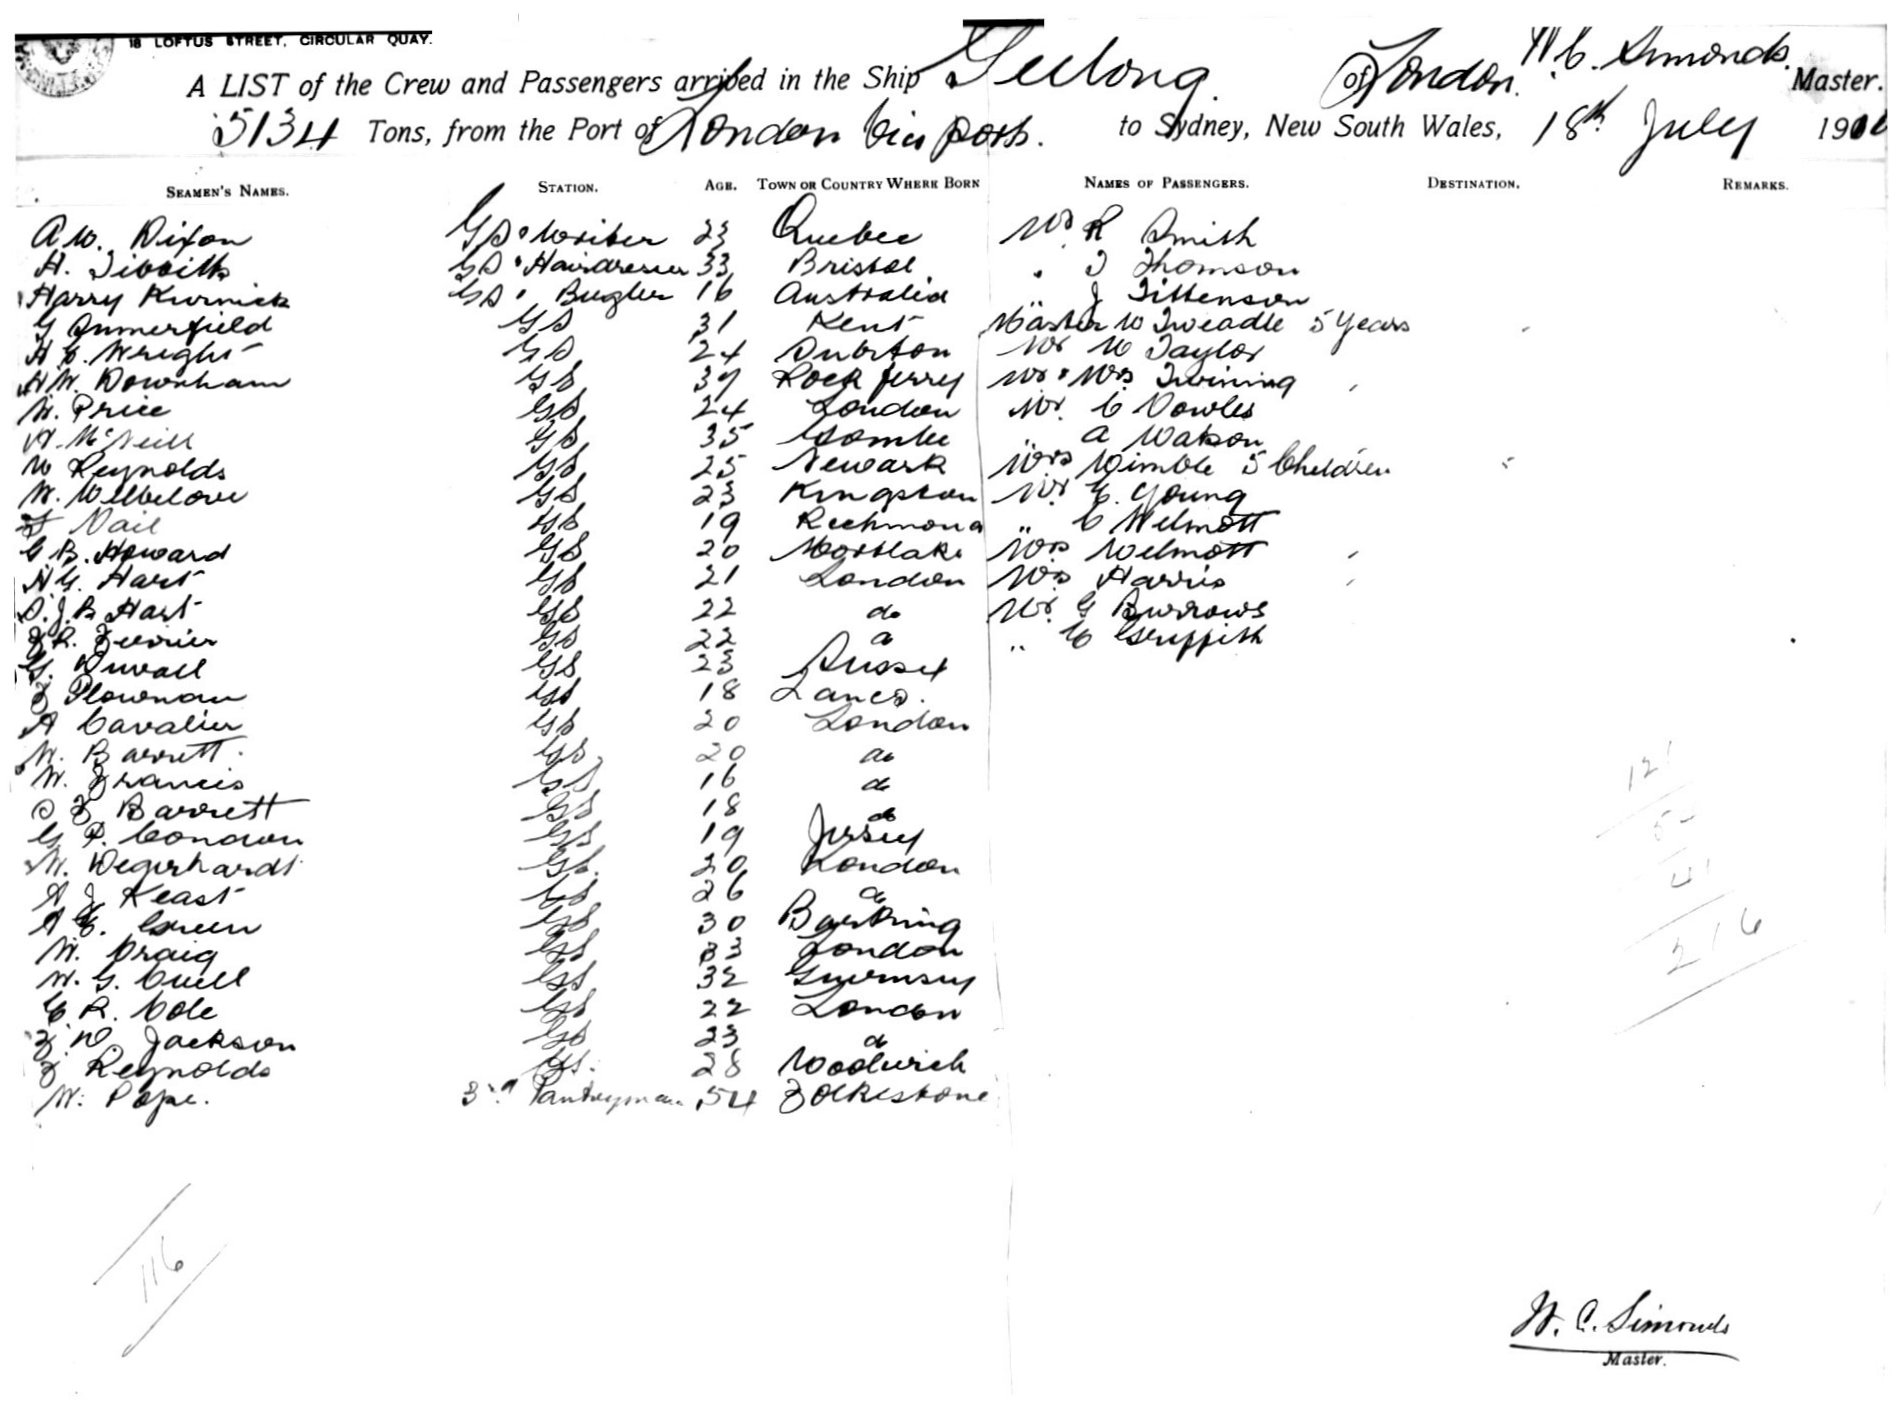 18 LOFTUS STREET, CIRCULAR QUAY.
A LIST of the Crew and Passengers arrived in the Ship Geelong of London. W. C. Simonds. Master.
5134 Tons, from the Port of London via ports. to Sydney, New South Wales, 18th July 191
SEAMEN'S NAMES. STATION. AGE. TOWN OR COUNTRY WHERE BORN NAMES OF PASSENGERS. DESTINATION. REMARKS.
A W. Dixon GS & Writer 23 Quebec Mr R Smith
H. Tibbitts GS & Hairdresser 33 Bristol " T Thomson
Harry Kurnick GS & Bugler 16 Australia " J Tittenson
G Summerfield GS 31 Kent Master W Tweadle 5 Years
H E. Wright GS 24 Surbiton Mr W Taylor
H W. Downham GS 37 Rock Ferry Mr & Mrs Twining
W. Price GS 24 London Mr. C Vowles
H McNeill GS 35 " A Watson
W Reynolds GS 25 Newark Mrs Wimble 5 Children
W. Welbelove GS 23 Kingston Mr. E. Young
Vail GS 19 Richmond " C Wilmott
G B. Howard GS 20 Mortlake Mrs Wilmott
H G. Hart GS 21 London Mrs Harris
S. J. B Hart GS 22 do Mr. G Burrows
F R. Ferrier GS 22 do " C Griffith
G. Duvall GS 23 Sussex
F Plowman GS 18 Lancs.
A Cavalier GS 20 London
W. Barrett GS 20 do
W. Francis GS 16 do
S F Barrett GS 18 do
G P. Condron GS 19 Jersey
W. Degerhardt GS. 20 London
A J Keast GS 26 do
A E. Green GS 30 Barking
W. Craig GS 33 London
W. G. Cuell GS 32 Guernsey
E R. Cole GS 22 London
F W Jackson GS 23 do
F Reynolds GS. 28 Woolwich
W. Pope. 3rd Pantryman 54 Folkestone
121
52
41
216
116
W. C. Simonds
Master.